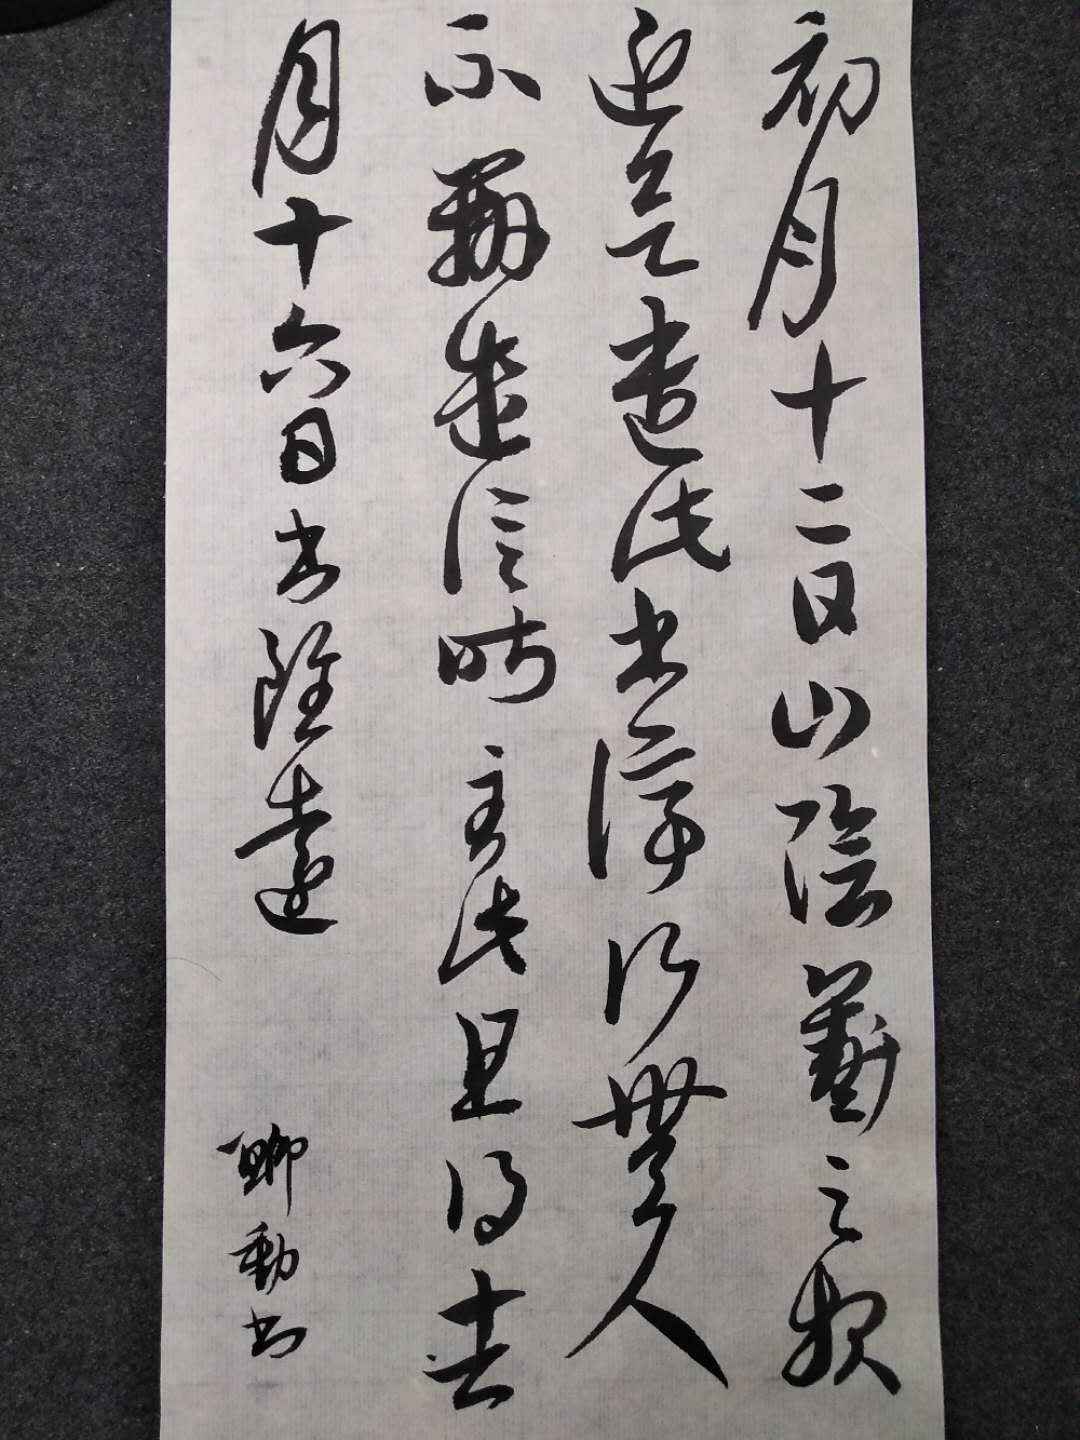 初月十二日山陰羲之報
近欲遣此書停行無人
不辦遣信昨至此且得去
月十六日書雖遠
書